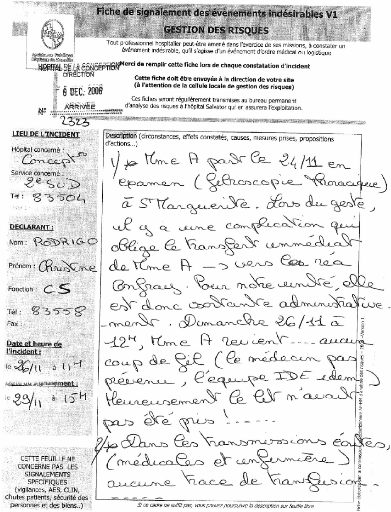 Fiche de signalement des événements indésirables V1
GESTION DES RISQUES
Tout professionnel hospitalier peut être amené dans l'exercice de ses missions, à constater un
événement indésirable, qu'il s'agisse d'un événement d'ordre médical ou logistique
Merci de remplir cette fiche lors de chaque constatation d'incident
Cette fiche doit être envoyée à la direction de votre site
(à l'attention de la cellule locale de gestion des risques)
Ces fiches seront régulièrement transmises au bureau permanent
d'analyse des risques à l'hôpital Salvator qui en assurera l'exploitation.
HOPITAL DE LA CONCEPTION
DIRECTION
6 DEC. 2006
ARRIVEE
N° 2323
LIEU DE L'INCIDENT
Hôpital concerné :
Concept°n
Service concerné :
2e SUD
Tél : 83504
DECLARANT :
Nom : RODRIGO
Prénom : Christine
Fonction CS
Tél : 83558
Fax :
Date et heure de
l'incident :
le 26/11 à 11H
le 29/11 à 15H
CETTE FEUILLE NE
CONCERNE PAS LES
SIGNALEMENTS
(vigilances, AES, CLIN,
chutes patients, sécurité des
personnes et des biens..)
Description (circonstances, effets constatés, causes, mesures prises, propositions
d'actions...)
1/ Mme A part le 24/11 en
examen (Fibroscopie Thoracique)
à Ste Marguerite. Lors du geste,
il y a une complication qui
oblige le transfert immédiat
de Mme A → vers les réa
Pour notre unité, elle
est donc sortante administrative-
ment. Dimanche 26/11 à
12H, Mme A revient ---- aucun
coup de fil (le médecin pas
prévenu, l'équipe IDE idem)
Heureusement le lit n'avait
pas été pris ! -----
2/ Dans les transmissions écrites,
(médicales et infirmière)
aucune trace de transfusion ---
Si ce cadre ne suffit pas, vous pouvez poursuivre la description sur feuille libre